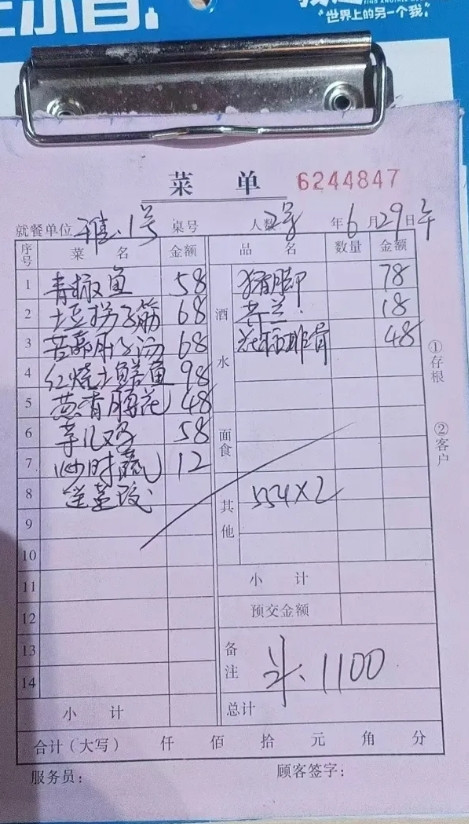 世界上的另一个我
菜 单 6244847
就餐单位 雅.1号 桌号 人数 2号 年6月29日午
序号 菜 名 金额 品 名 数量 金额
1 青椒鱼 58 猪脚 78
2 土豆拐子筋 68 酒 18
3 汤 68 水 排骨 48
4 红烧土鳝鱼 98
5 葱青腰花 48
6 芋儿鸡 58 面食
7 炒时蔬 12
8 其他 554×2
9
10
11 小 计
12 预交金额
13 备注 1100
14
小 计 总计
合计(大写) 仟 佰 拾 元 角 分
服务员: 顾客签字:
①存根
②客户